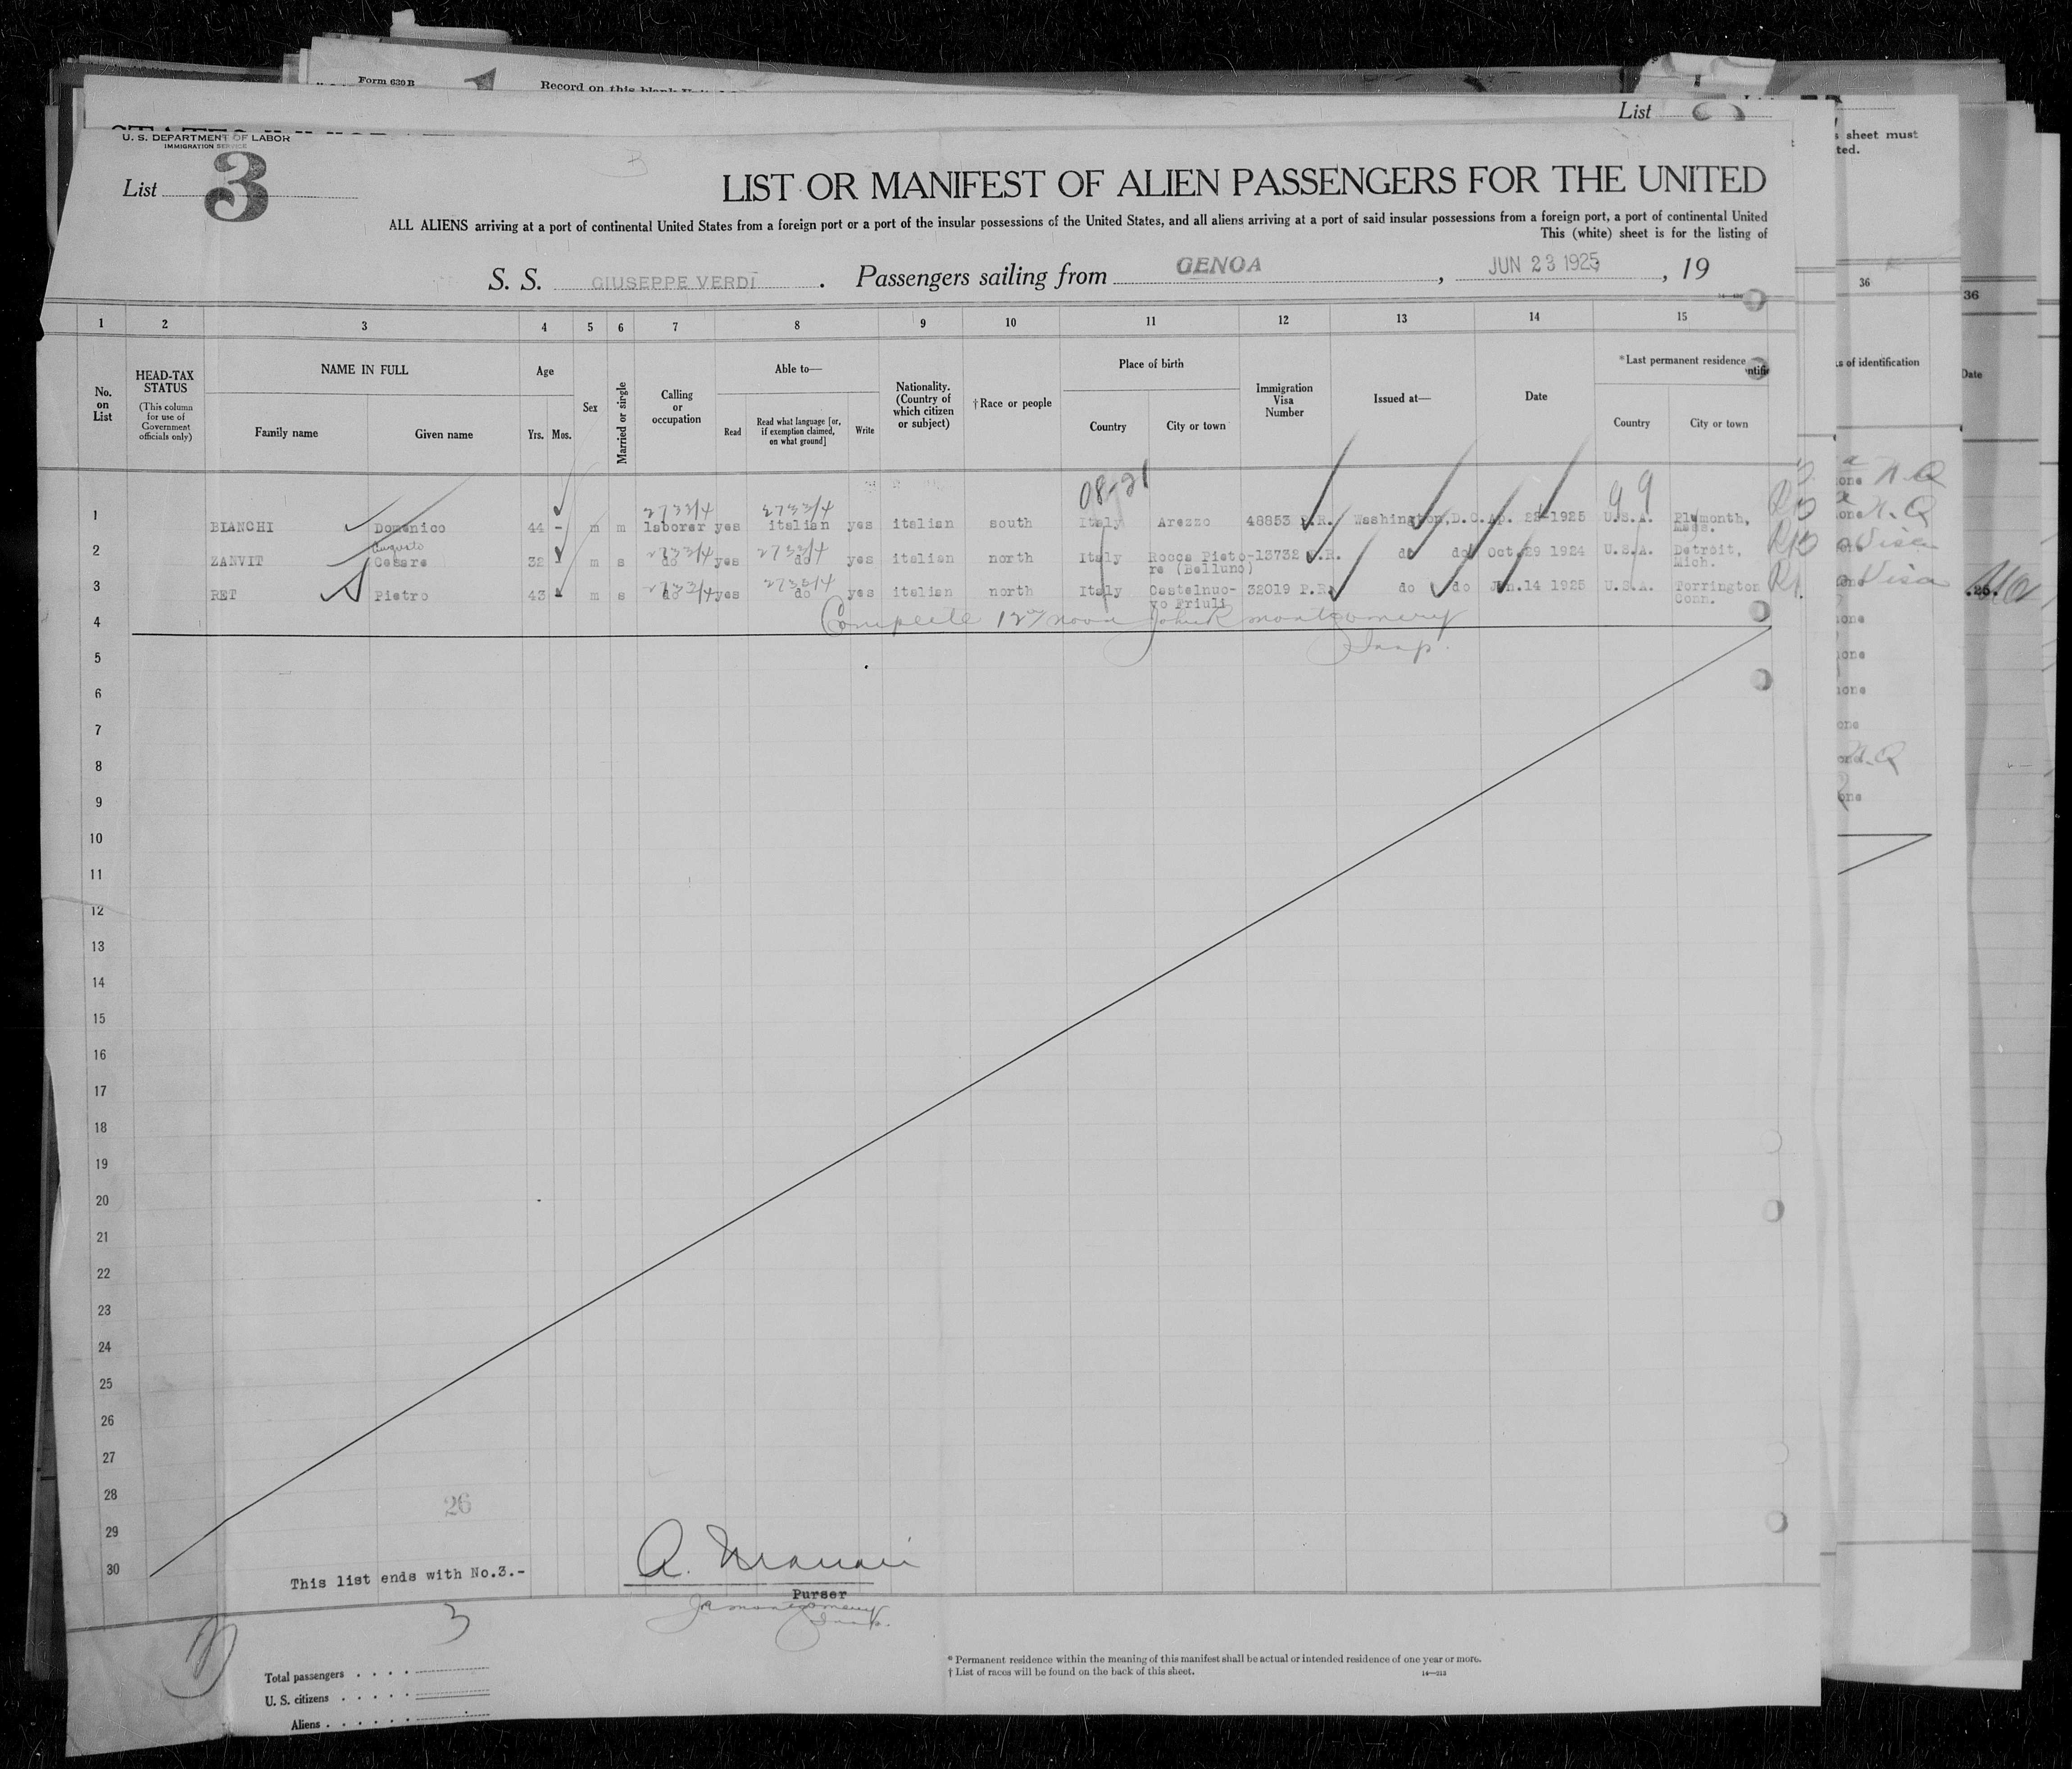 Form 630 B
Record on this blank
List
sheet must
ted.
U. S. DEPARTMENT OF LABOR
IMMIGRATION SERVICE
List 3
LIST OR MANIFEST OF ALIEN PASSENGERS FOR THE UNITED
ALL ALIENS arriving at a port of continental United States from a foreign port or a port of the insular possessions of the United States, and all aliens arriving at a port of said insular possessions from a foreign port, a port of continental United
This (white) sheet is for the listing of
S. S. GIUSEPPE VERDI . Passengers sailing from GENOA , JUN 23 1925 , 19
1 2 3 4 5 6 7 8 9 10 11 12 13 14 15 36 36
No. on List
HEAD-TAX STATUS
(This column for use of Government officials only)
NAME IN FULL
Family name Given name
Age
Yrs. Mos.
Sex
Married or single
Calling or occupation
Able to—
Read
Read what language [or, if exemption claimed, on what ground]
Write
Nationality. (Country of which citizen or subject)
†Race or people
Place of birth
Country City or town
Immigration Visa Number
Issued at—
Date
*Last permanent residence
Country City or town
s of identification
Date
08-21 99
2733/4 2733/4
1 BIANCHI Domenico 44 - m m laborer yes italian yes italian south Italy Arezzo 48853 P.R. Washington,D.C. Ap. 22 1925 U.S.A. Plymonth, Mass.
Augusto 2733/4 2733/4
2 ZANVIT Cesare 32 m s do yes do yes italian north Italy Rocca Pieto- 13732 P.R. do do Oct.29 1924 U.S.A. Detroit,
re (Belluno) Mich.
2733/4 2733/4
3 RET Pietro 43 m s do yes do yes italian north Italy Castelnuo- 32019 P.R. do do Jan.14 1925 U.S.A. Torrington
vo Friuli Conn.
4 Complete 12 noon John R Montgomery
Insp.
5
6
7
8
9
10
11
12
13
14
15
16
17
18
19
20
21
22
23
24
25
26
27
28
26
29
30
This list ends with No.3.-
Purser
JR Montgomery
Insp.
3
Total passengers . . . .
U. S. citizens . . . . .
Aliens . . . . . .
* Permanent residence within the meaning of this manifest shall be actual or intended residence of one year or more.
† List of races will be found on the back of this sheet.